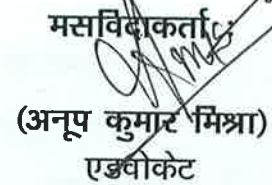 मसविदाकर्ता
(अनूप कुमार मिश्रा)
एडवोकेट